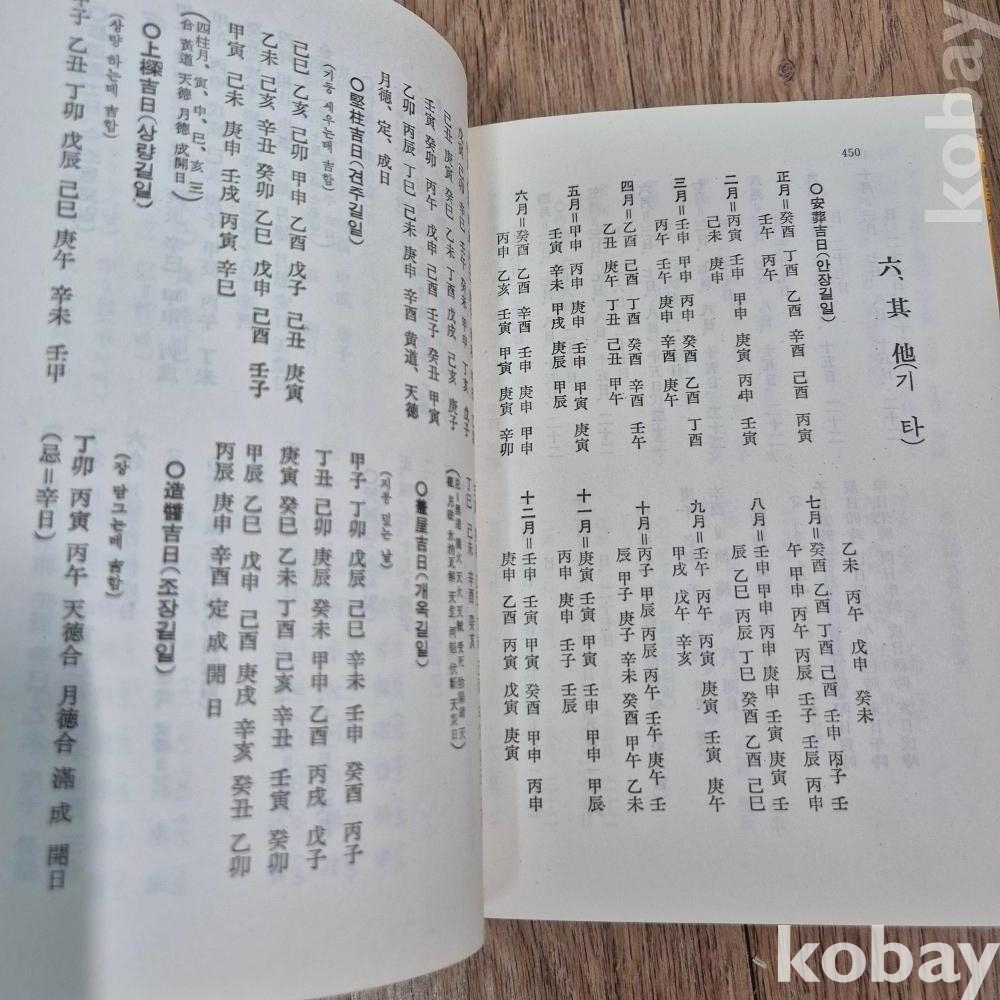 450
六、其他(기타)
○安葬吉日(안장길일)
正月=癸酉 丁酉 乙酉 辛酉 己酉 丙寅
壬午 丙午
二月=丙寅 壬申 甲申 庚寅 丙申 壬寅
己未 庚申
三月=壬申 丙申 甲申 癸酉 乙酉 丁酉
丙午 壬午 庚申 辛酉 庚午
四月=乙酉 己酉 丁酉 癸酉 辛酉 壬午
乙丑 庚午 丁丑 己丑 甲午
五月=甲申 丙申 庚申 壬申 甲寅 庚寅
壬寅 辛未 甲戌 庚辰 甲辰
六月=癸酉 乙酉 辛酉 壬申 庚申 甲申
丙申 乙亥 壬寅 甲寅 庚寅 辛卯
乙未 丙午 戊申 癸未
七月=癸酉 乙酉 丁酉 己酉 壬辰 丙子 壬
午 甲申 丙午 丙申 壬子 壬辰 丙申
八月=壬申 甲申 丙申 庚申 壬寅 庚寅 壬
辰 乙巳 丙辰 丁巳 癸酉 乙酉 己巳
九月=壬午 丙午 丙寅 庚寅 壬寅 庚午
甲戌 戊午 辛亥
十月=丙子 甲辰 丙辰 丙午 壬午 庚午 壬
辰 甲子 庚子 辛未 癸酉 甲午 乙未
十一月=庚寅 壬寅 甲寅 丙寅 壬辰 甲辰
丙申 庚申 壬子 壬辰
十二月=壬申 丙申 庚寅 癸酉 甲申 丙申
庚申 乙酉 丙寅 戊寅 庚寅
己丑 庚寅 癸巳 乙未 丁酉 戊戌 己亥 庚子
壬寅 癸卯 丙午 戊申 己酉 壬子 癸丑 甲寅
乙卯 丙辰 丁巳 己未 庚申 辛酉 黄道、天德
月德、定、成日
○竪柱吉日(견주길일)
(기둥 세우는데 吉함)
己巳 乙亥 己卯 甲申 乙酉 戊子 己丑 庚寅
乙未 己亥 辛丑 癸卯 乙巳 戊申 己酉 壬子
甲寅 己未 庚申 壬戌 丙寅 辛巳
四柱月、寅、申、巳、亥
合 黃道 天德 月德 成開日
○上樑吉日(상량길일)
(상량 하는데 吉함)
甲子 乙丑 丁卯 戊辰 己巳 庚午 辛未 壬申
丁巳 己未 辛酉 癸亥
○蓋屋吉日(개옥길일)
(지붕 덮는 날)
甲子 丁卯 戊辰 己巳 辛未 壬申 癸酉 丙子
丁丑 己卯 庚辰 癸未 甲申 乙酉 丙戌 戊子
庚寅 癸巳 乙未 丁酉 己亥 辛丑 壬寅 癸卯
甲辰 乙巳 戊申 己酉 庚戌 辛亥 癸丑 乙卯
丙辰 庚申 辛酉 定 成 開 日
○造醬吉日(조장길일)
(장 담그는데 吉함)
丁卯 丙寅 丙午 天德合 月德合 滿 成 開日
(忌=辛日)
kobay
kobay